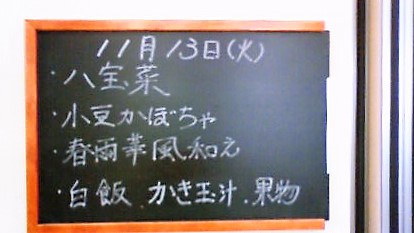 11月13日(火)
・八宝菜
・小豆かぼちゃ
・春雨華風和え
・白飯 かき玉汁.果物